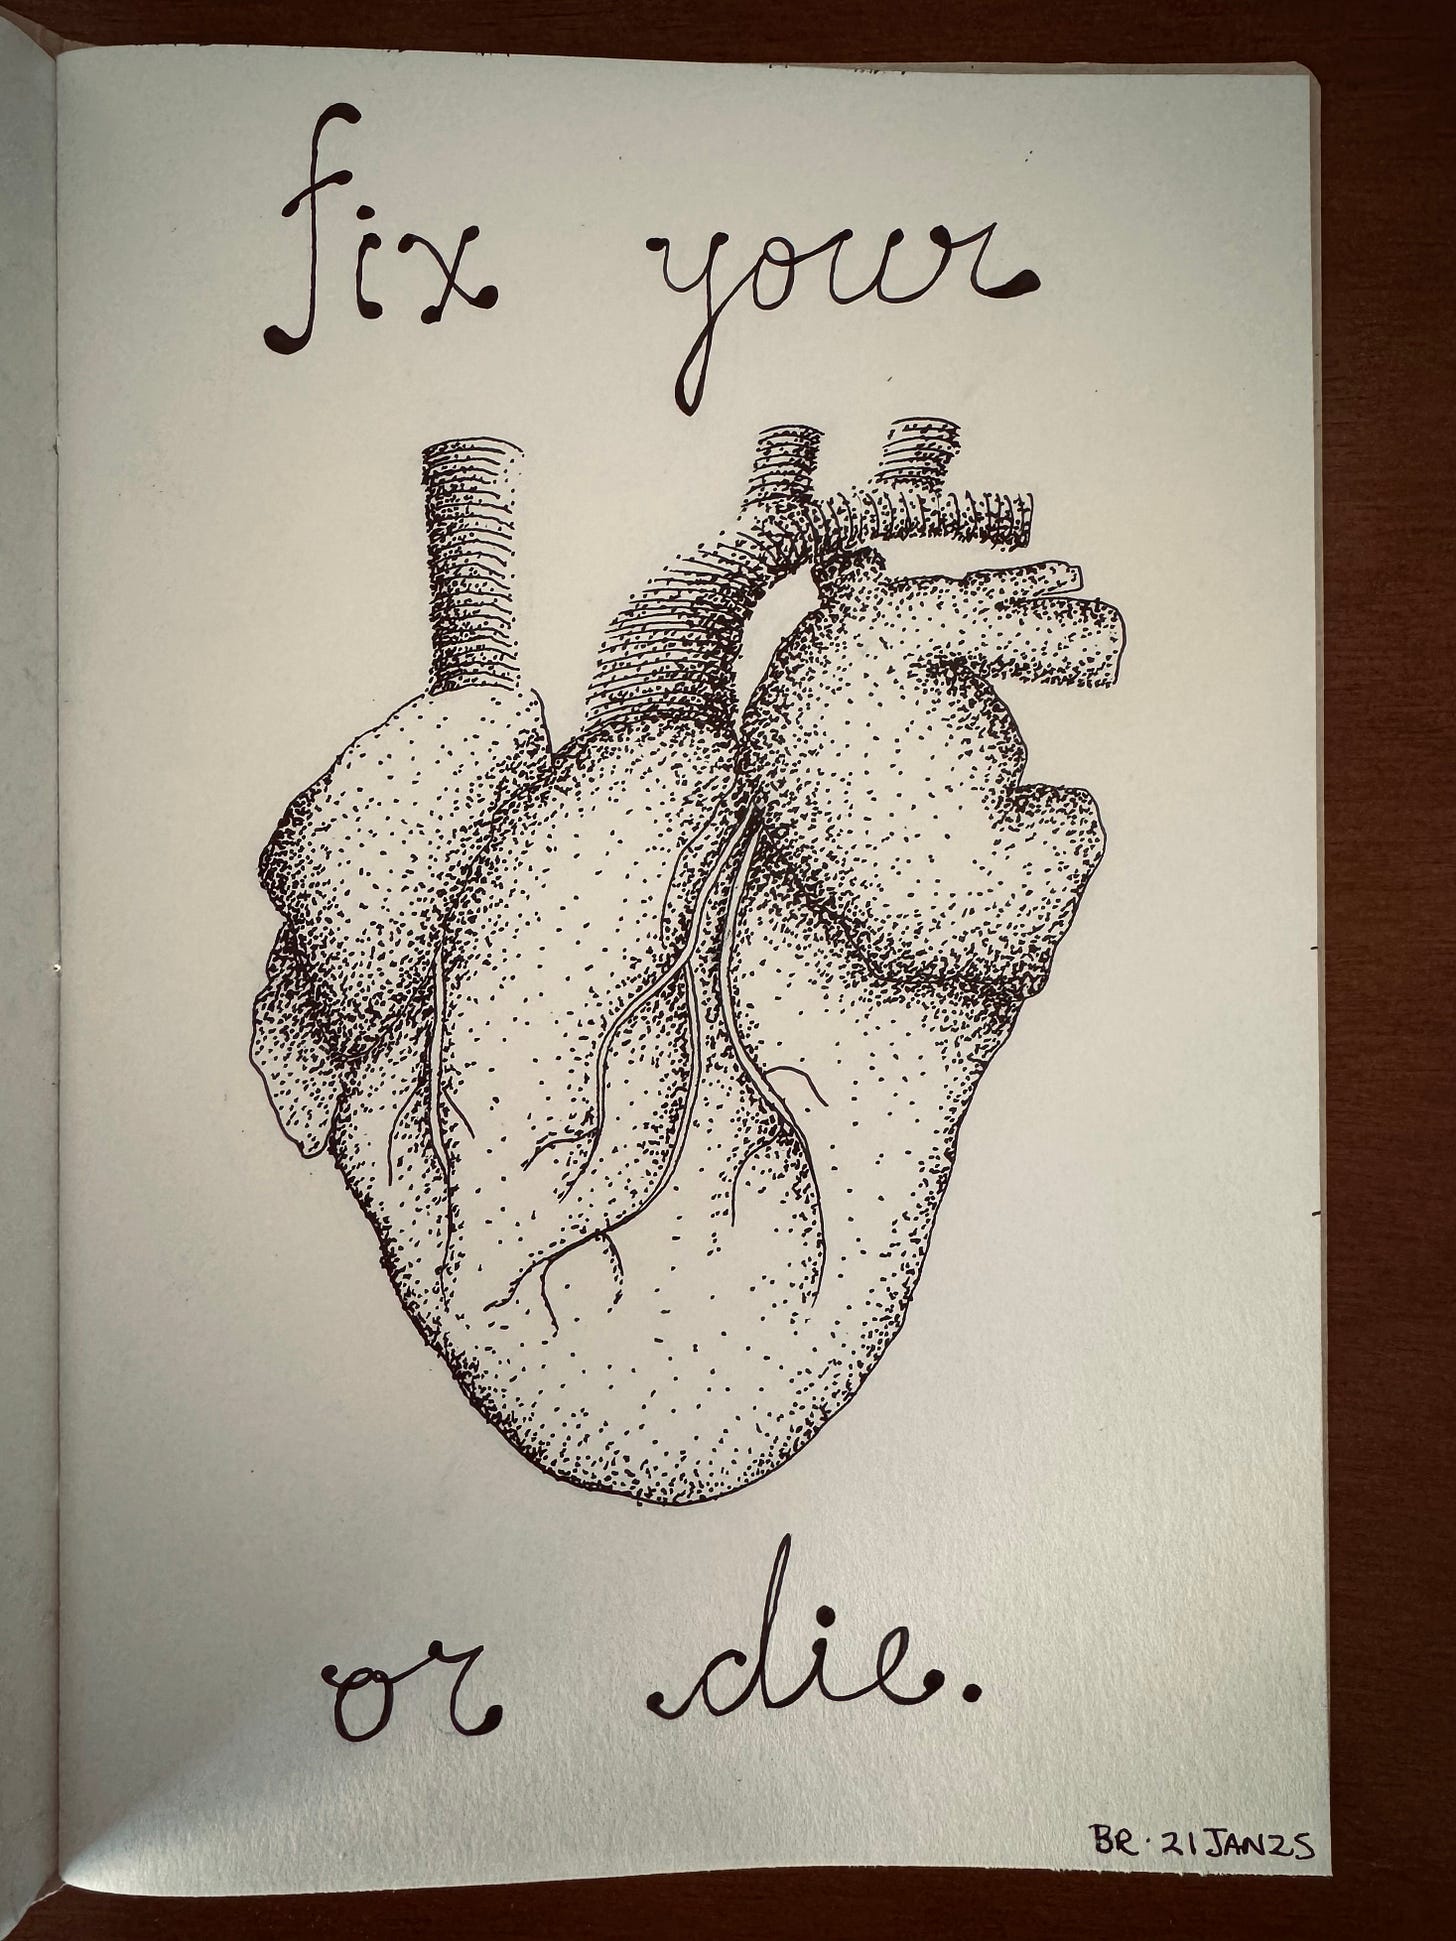 fix your
or die.
BR · 21JAN25